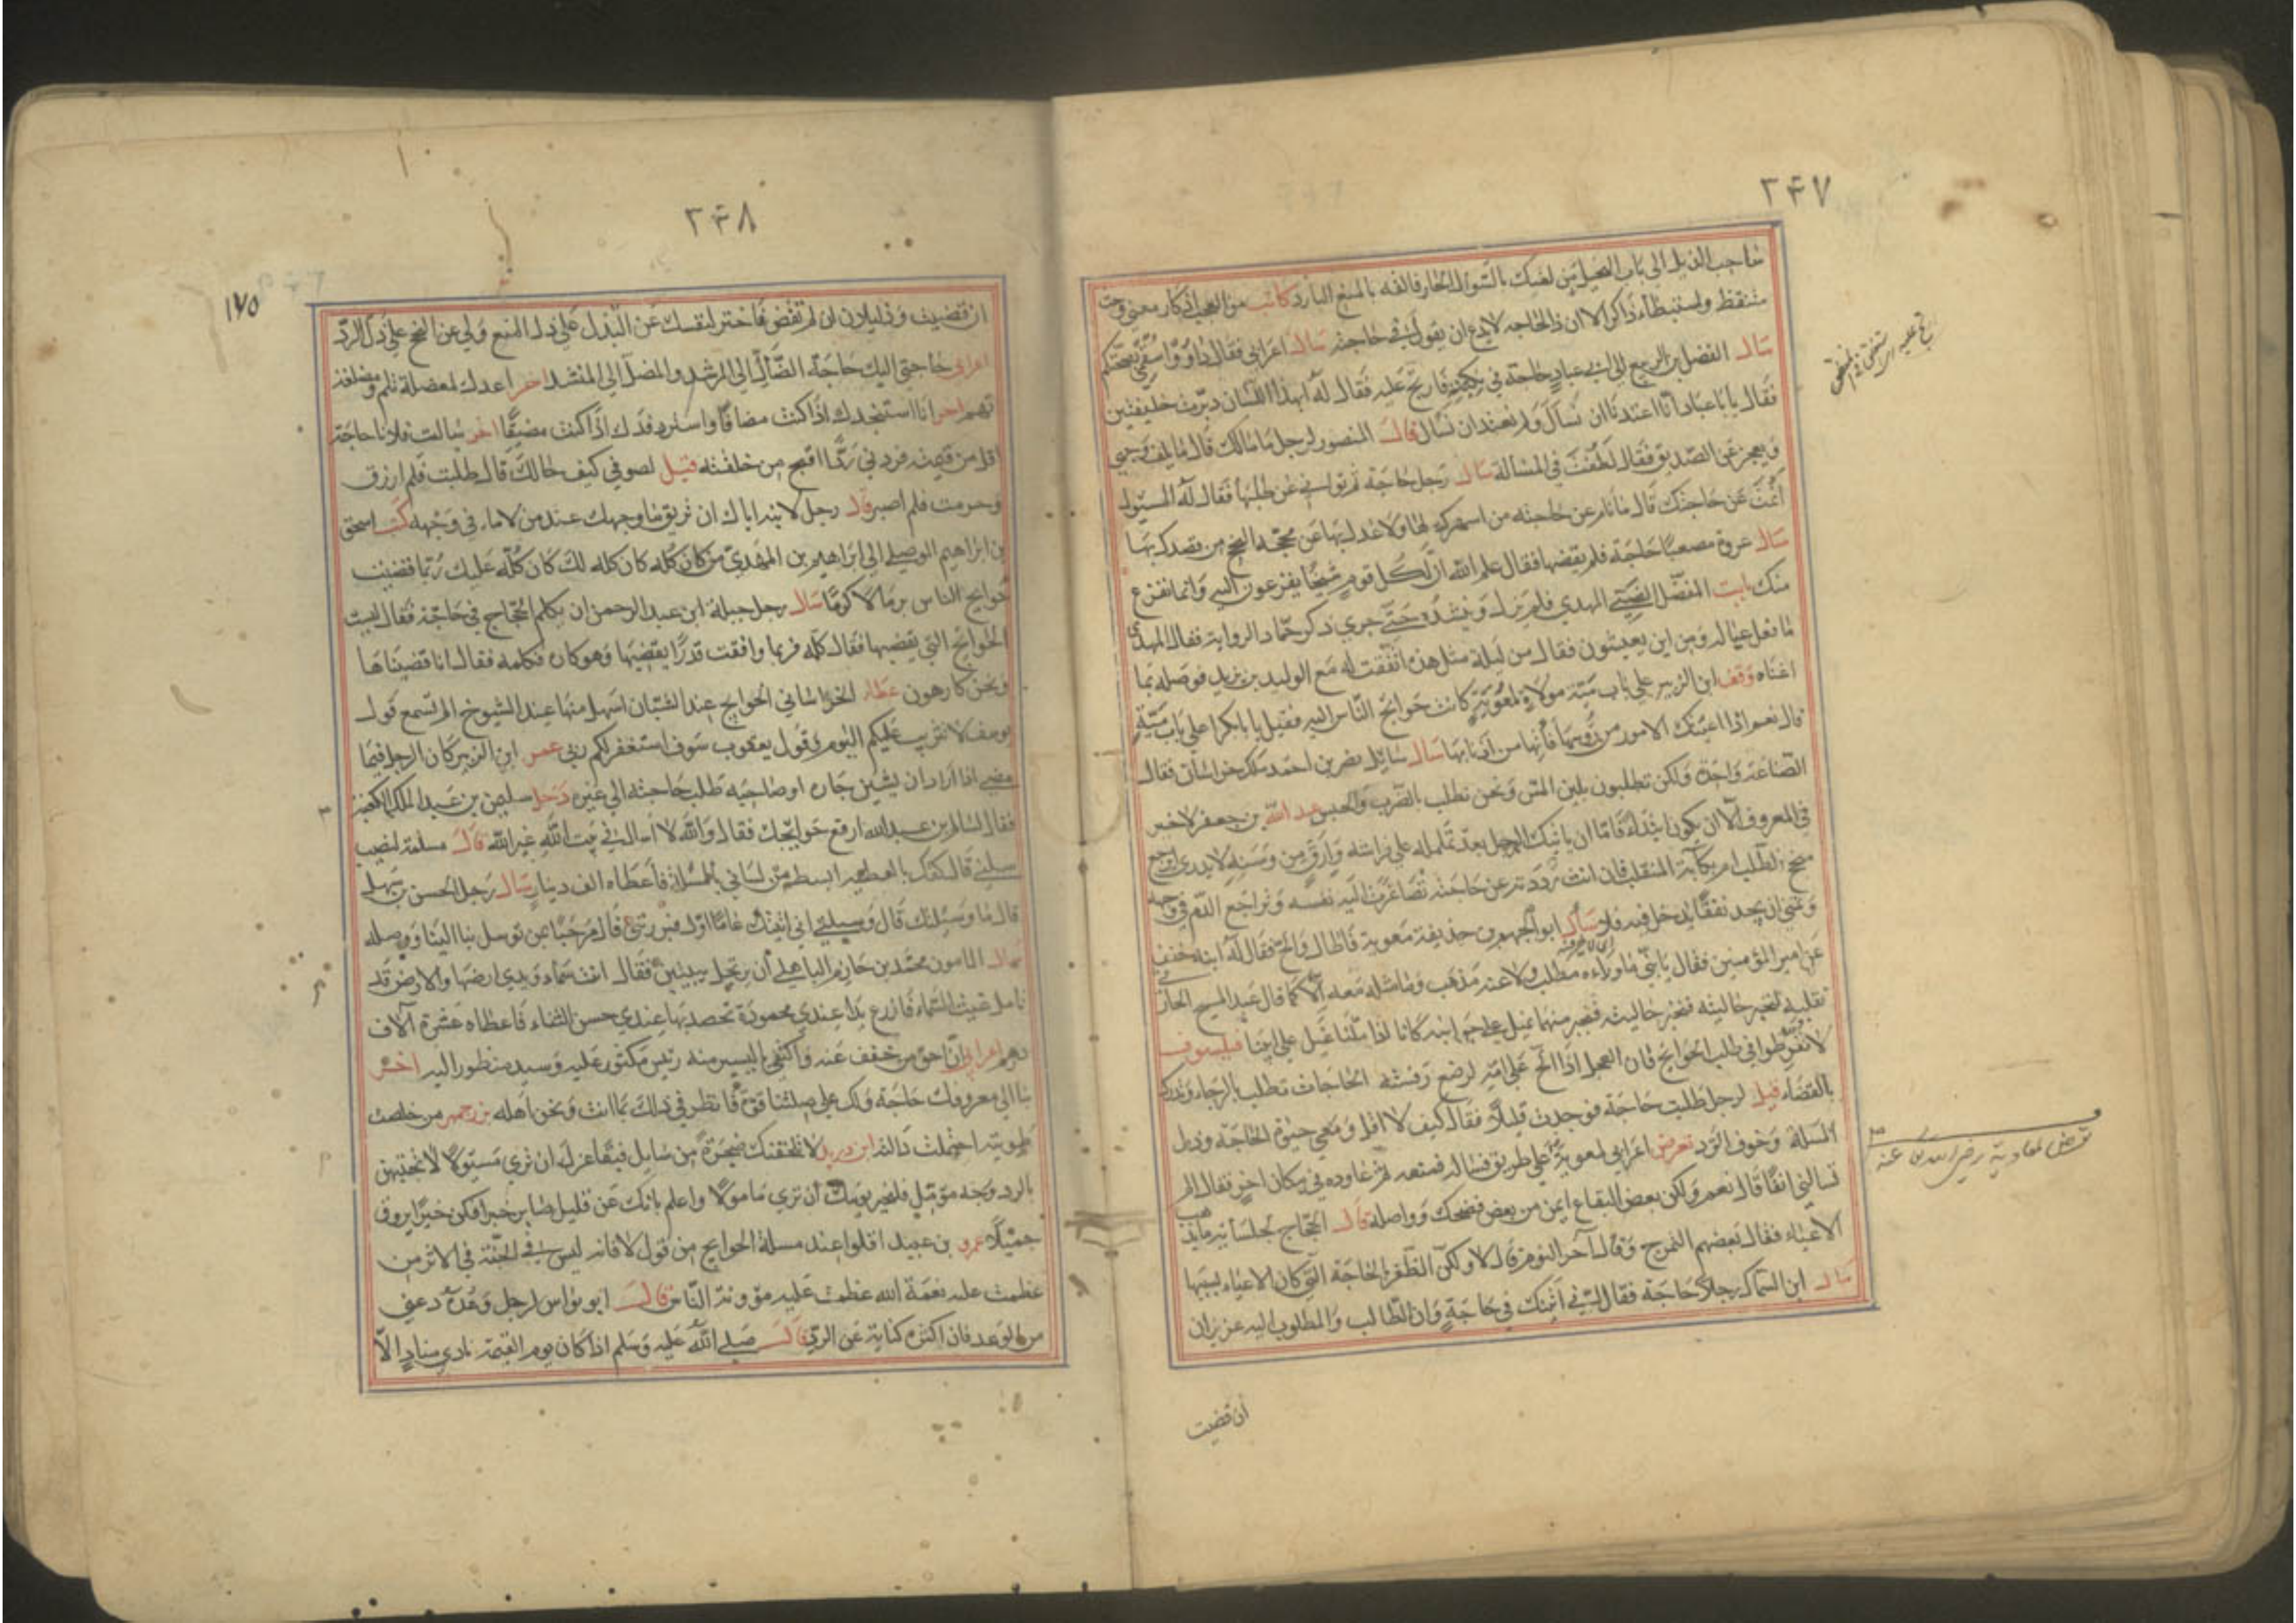 ٢٤٧
صاحب الفيل الى باب الفيل من لقيك بالسؤال الحار فالقه بالمنع البارد كاتب من العجب اذكار معنى وحث
متيقظ واستبطاء ذاكر الا ان ذا الحاجه لا يدع ان يقول في حاجته سال اعرابي فقال
سال الفضل بن الربيع الى ابي عباد حاجة في نكبته فارتج عليه فقال له ابهذا اللسان دبرت خليفتين
فقال يا ابا عباد انا اعتدنا ان نسال ولم نعتد ان نسال قال المنصور لرجل ما مالك قال ما يكف وجهي
ويعجز عن الصديق فقال لطفت في المسألة سال رجل حاجة ثم توانى عن طلبها فقال له المسئول
أنمت عن حاجتك قال ما نام عن حاجته من اسهرك لها ولا عدل بها عن محجة النجح من قصدك بها
سال عروة مصعبا حاجة فلم يقضها فقال علم الله ان لكل قوم شيخا يفزعون اليه وانما نفزع
منك بايت المفضل الضبي المهدي فلم يزل وينشده حتى جرى ذكر حماد الراوية فقال المهدي
ما فعل عياله ومن اين يعيشون فقال من ليلة مثل هذه اتفقت له مع الوليد بن يزيد فوصله بما
اغناه وقف ابن الزبير على باب ميّة مولاة لمعوية كانت حوائج الناس اليه فقيل يا ابا بكر اعلى باب ميّة
قال نعم اذا اعيتك الامور من رؤسها فأتها من اذنابها سال سائل نصر بن احمد ملك خراسان فقال
الصناعة واحدة ولكن تطلبون بلين المس ونحن نطلب بالضرب والحبس عبد الله بن جعفر لا خير
في المعروف الا ان يكون ابتداء فاما ان ياتيك الرجل بعد تململه على فراشه وارق من وسنه لا يدري ايرجع
بنجح الطلب ام بكآبة المنقلب فان انت رددته عن حاجته تصاغرت اليه نفسه وتراجع الدم في وجهه
وتمنى ان يجد نفقا يدخل فيه فلا سأل ابو الجهم بن حذيفة معوية فاطال والح فقال له ابنه خفف
عن امير المؤمنين فقال يا بنى ما وراءه مطلب ولا عنه مذهب وما مثله معه الا كما قال عبد المسيح
نقلبه لنخبر حالتيه فنخبر منهما نميل على جوانبه كانا اذا ملنا نميل على ابينا فيلسوف
لا تفرطوا في طلب الحوائج فان العجل اذا الح على امه لرضع رفسته الحاجات تطلب بالرجاء وتدرك
بالقضاء قيل لرجل طلبت حاجة فوجدت قليلا فقال كيف لا اقل ومعي حيرة الحاجة وذل
المسلة وخوف الرد تعرض اعرابي لمعوية على طريق فساله فمنعه ثم عاوده في مكان اخر فقال الم
تسالني انفا قال نعم ولكن بعض البقاع ايمن من بعض فضحك وواصله قال الحجاج لجلسائه ما يذهب
الاعياء فقال بعضهم التمرج وقال آخر النوم قال لا ولكن الظفر بالحاجة التي كان الاعياء بسببها
سال ابن السماك رجلا حاجة فقال اني اتيتك في حاجة وان الطالب والمطلوب اليه عزيزان
ان قضيت
تعرض لمعاوية رضي الله عنه
٢٤٨
١٧٥
ان قضيت وذليلان ان لم تقض فاختر لنفسك عن البذل على ذل المنع ولي عن النجح على ذل الرد
اعرابي حاجتي اليك حاجة الضال الى المرشد والمضل الى المنشد اخر اعدك لمعضلة تلم ومضلعة
تهم اخر انا استنجدك اذا كنت مضافا واسترفدك اذا كنت مضيقا اخر سالت فلانا حاجة
اقل من قيمته فردني ردا اقبح من خلقته قيل لصوفي كيف حالك قال طلبت فلم ارزق
وحرمت فلم اصبر قال رجل لابنه اياك ان تريق ماء وجهك عند من لا ماء في وجهه كتب اسحق
بن ابراهيم الموصلي الى ابراهيم بن المهدي من كان كله لك كان كله عليك ربما قضيت
حوايج الناس برما لا كرما سال رجل جبلة ابن عبد الرحمن ان يكلم الحجاج في حاجة فقال ليست
الحوائج التي يقضيها فقال كلمه فربما وافقت قدرا يقضيها وهو كاره فكلمه فقال انا قضيناها
ونحن كارهون عطاء الخراساني الحوايج عند الشبان اسهل منها عند الشيوخ الم تسمع قول
يوسف لا تثريب عليكم اليوم وقول يعقوب سوف استغفر لكم ربي عمر ابن الزبير كان الرجل فيما
مضى اذا اراد ان يشين جاره او صاحبه طلب حاجته الى غيره دخل سليمن بن عبد الملك الكعبة
فقال لسالم بن عبد الله ارفع حوايجك فقال والله لا اسال في بيت الله غير الله قال مسلمة لنصيب
سلني قال كفك بالعطية ابسط من لساني بالمسئلة فأعطاه الف دينار سال رجل الحسن بن سهل
قال ما وسيلتك قال وسيلتي اني اتيتك عاما اول فبررتني قال مرحبا بمن توسل بنا الينا ووصله
سال المامون محمد بن حازم الباهلي أن يرتجل ببيتين فقال انت سماء ويدي ارضها والارض قد
تامل غيث السماء فازرع يدا عندي محمودة تحصد بها عندي حسن الثناء فاعطاه عشرة آلاف
درهم اعرابي ان احق من خفف عنه واكتفى باليسير منه رئيس مكثور عليه وسيد منظور اليه اخر
بنا الى معروفك حاجة ولك على صلتنا قوة فانظر في ذلك بما انت ونحن اهله بزرجمهر من خلصت
طويته احتملت دالته ابن دريد لا تلحقنك ضجرة من سايل فبقاء عزك ان ترى مسئولا لا تجبهن
بالرد وجه مؤمل فلخير يومك أن ترى مامولا واعلم بانك عن قليل صائر خبرا فكن خبرا يروق
جميلا عمرو بن عبيد اقلوا عند مسلة الحوايج من قول لا فانه ليس في الجنة لا في الاثر من
عظمت عليه نعمة الله عظمت عليه مؤونة الناس قال ابو نواس لرجل وعده دعني
من الوعد فان اكثره كناية عن الرد قال صلى الله عليه وسلم اذا كان يوم القيمة نادى مناد الا